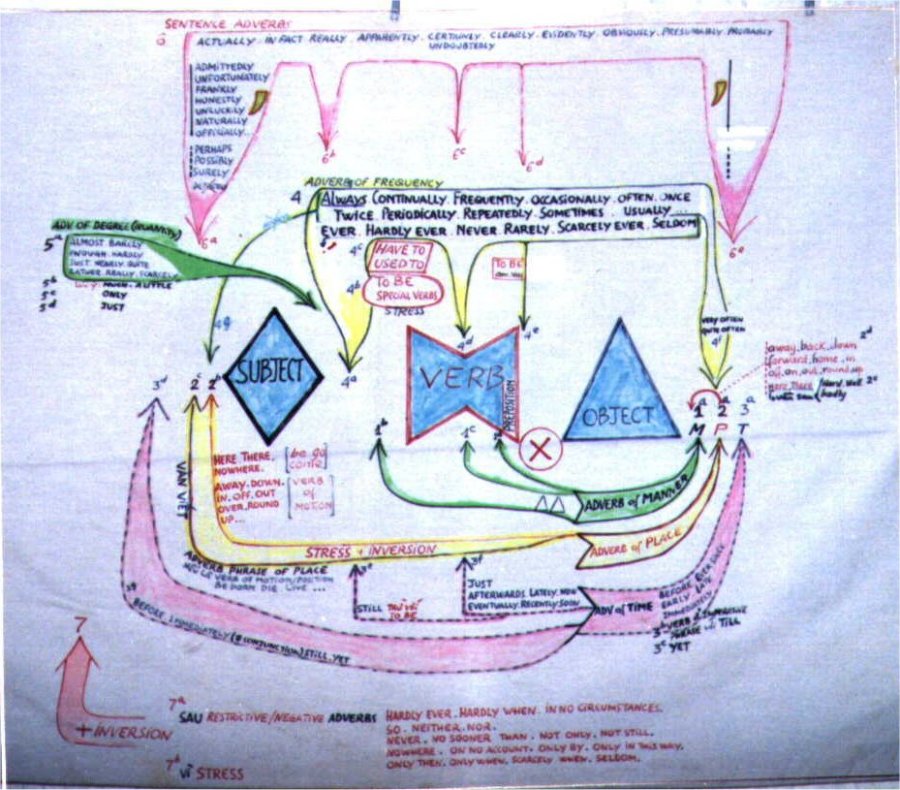 SENTENCE ADVERBS
6
ACTUALLY. IN FACT REALLY. APPARENTLY. CERTAINLY. CLEARLY. EVIDENTLY. OBVIOUSLY. PRESUMABLY. PROBABLY
UNDOUBTEDLY
ADMITTEDLY
UNFORTUNATELY
FRANKLY
HONESTLY
UNLUCKILY
NATURALLY
OFFICIALLY...
PERHAPS
POSSIBLY
SURELY
6a
6b
6c
6d
6e
ADVERB OF FREQUENCY
4
ALWAYS CONTINUALLY. FREQUENTLY. OCCASIONALLY. OFTEN. ONCE
TWICE. PERIODICALLY. REPEATEDLY. SOMETIMES. USUALLY...
EVER. HARDLY EVER. NEVER. RARELY. SCARCELY EVER. SELDOM
ADV OF DEGREE (QUANTITY)
5a
ALMOST BARELY
ENOUGH. HARDLY
JUST. NEARLY. QUITE
RATHER. REALLY. SCARCELY
5b MUCH. A LITTLE
5c ONLY
5d JUST
4c
HAVE TO
USED TO
4b
TO BE
SPECIAL VERBS
STRESS
TO BE
4g
4a
4d
4e
VERY OFTEN
QUITE OFTEN
4f
SUBJECT
VERB
PREPOSITION
OBJECT
away. back. down
forward. home. in
off. on. out. round. up
Here There
2d
Hard. Well 2c
badly
3d
2c
2b
1b
1c
1a
2a
3a
M
P
T
HERE THERE,
NOWHERE.
be go
come
AWAY. DOWN.
IN. OFF. OUT
OVER. ROUND
UP...
VERB
of
MOTION
VĂN VIẾT
ADVERB OF MANNER
STRESS + INVERSION
ADVERB of PLACE
ADVERB PHRASE OF PLACE
VERB OF MOTION/POSITION
BE BORN DIE. LIVE ...
3e
3f
STILL
TO BE
JUST
AFTERWARDS. LATELY. NOW
EVENTUALLY. RECENTLY. SOON
ADV of TIME
BEFORE
EARLY LATE
IMMEDIATELY
TILL
3c YET
BEFORE IMMEDIATELY (= CONJUNCTION) STILL. YET
7
+ INVERSION
7a
SAU RESTRICTIVE/NEGATIVE ADVERBS
HARDLY EVER. HARDLY WHEN. IN NO CIRCUMSTANCES.
SO. NEITHER. NOR.
NEVER. NO SOONER THAN. NOT ONLY. NOT STILL.
NOWHERE. ON NO ACCOUNT. ONLY BY. ONLY IN THIS WAY.
ONLY THEN. ONLY WHEN. SCARCELY WHEN. SELDOM.
7b VÌ STRESS